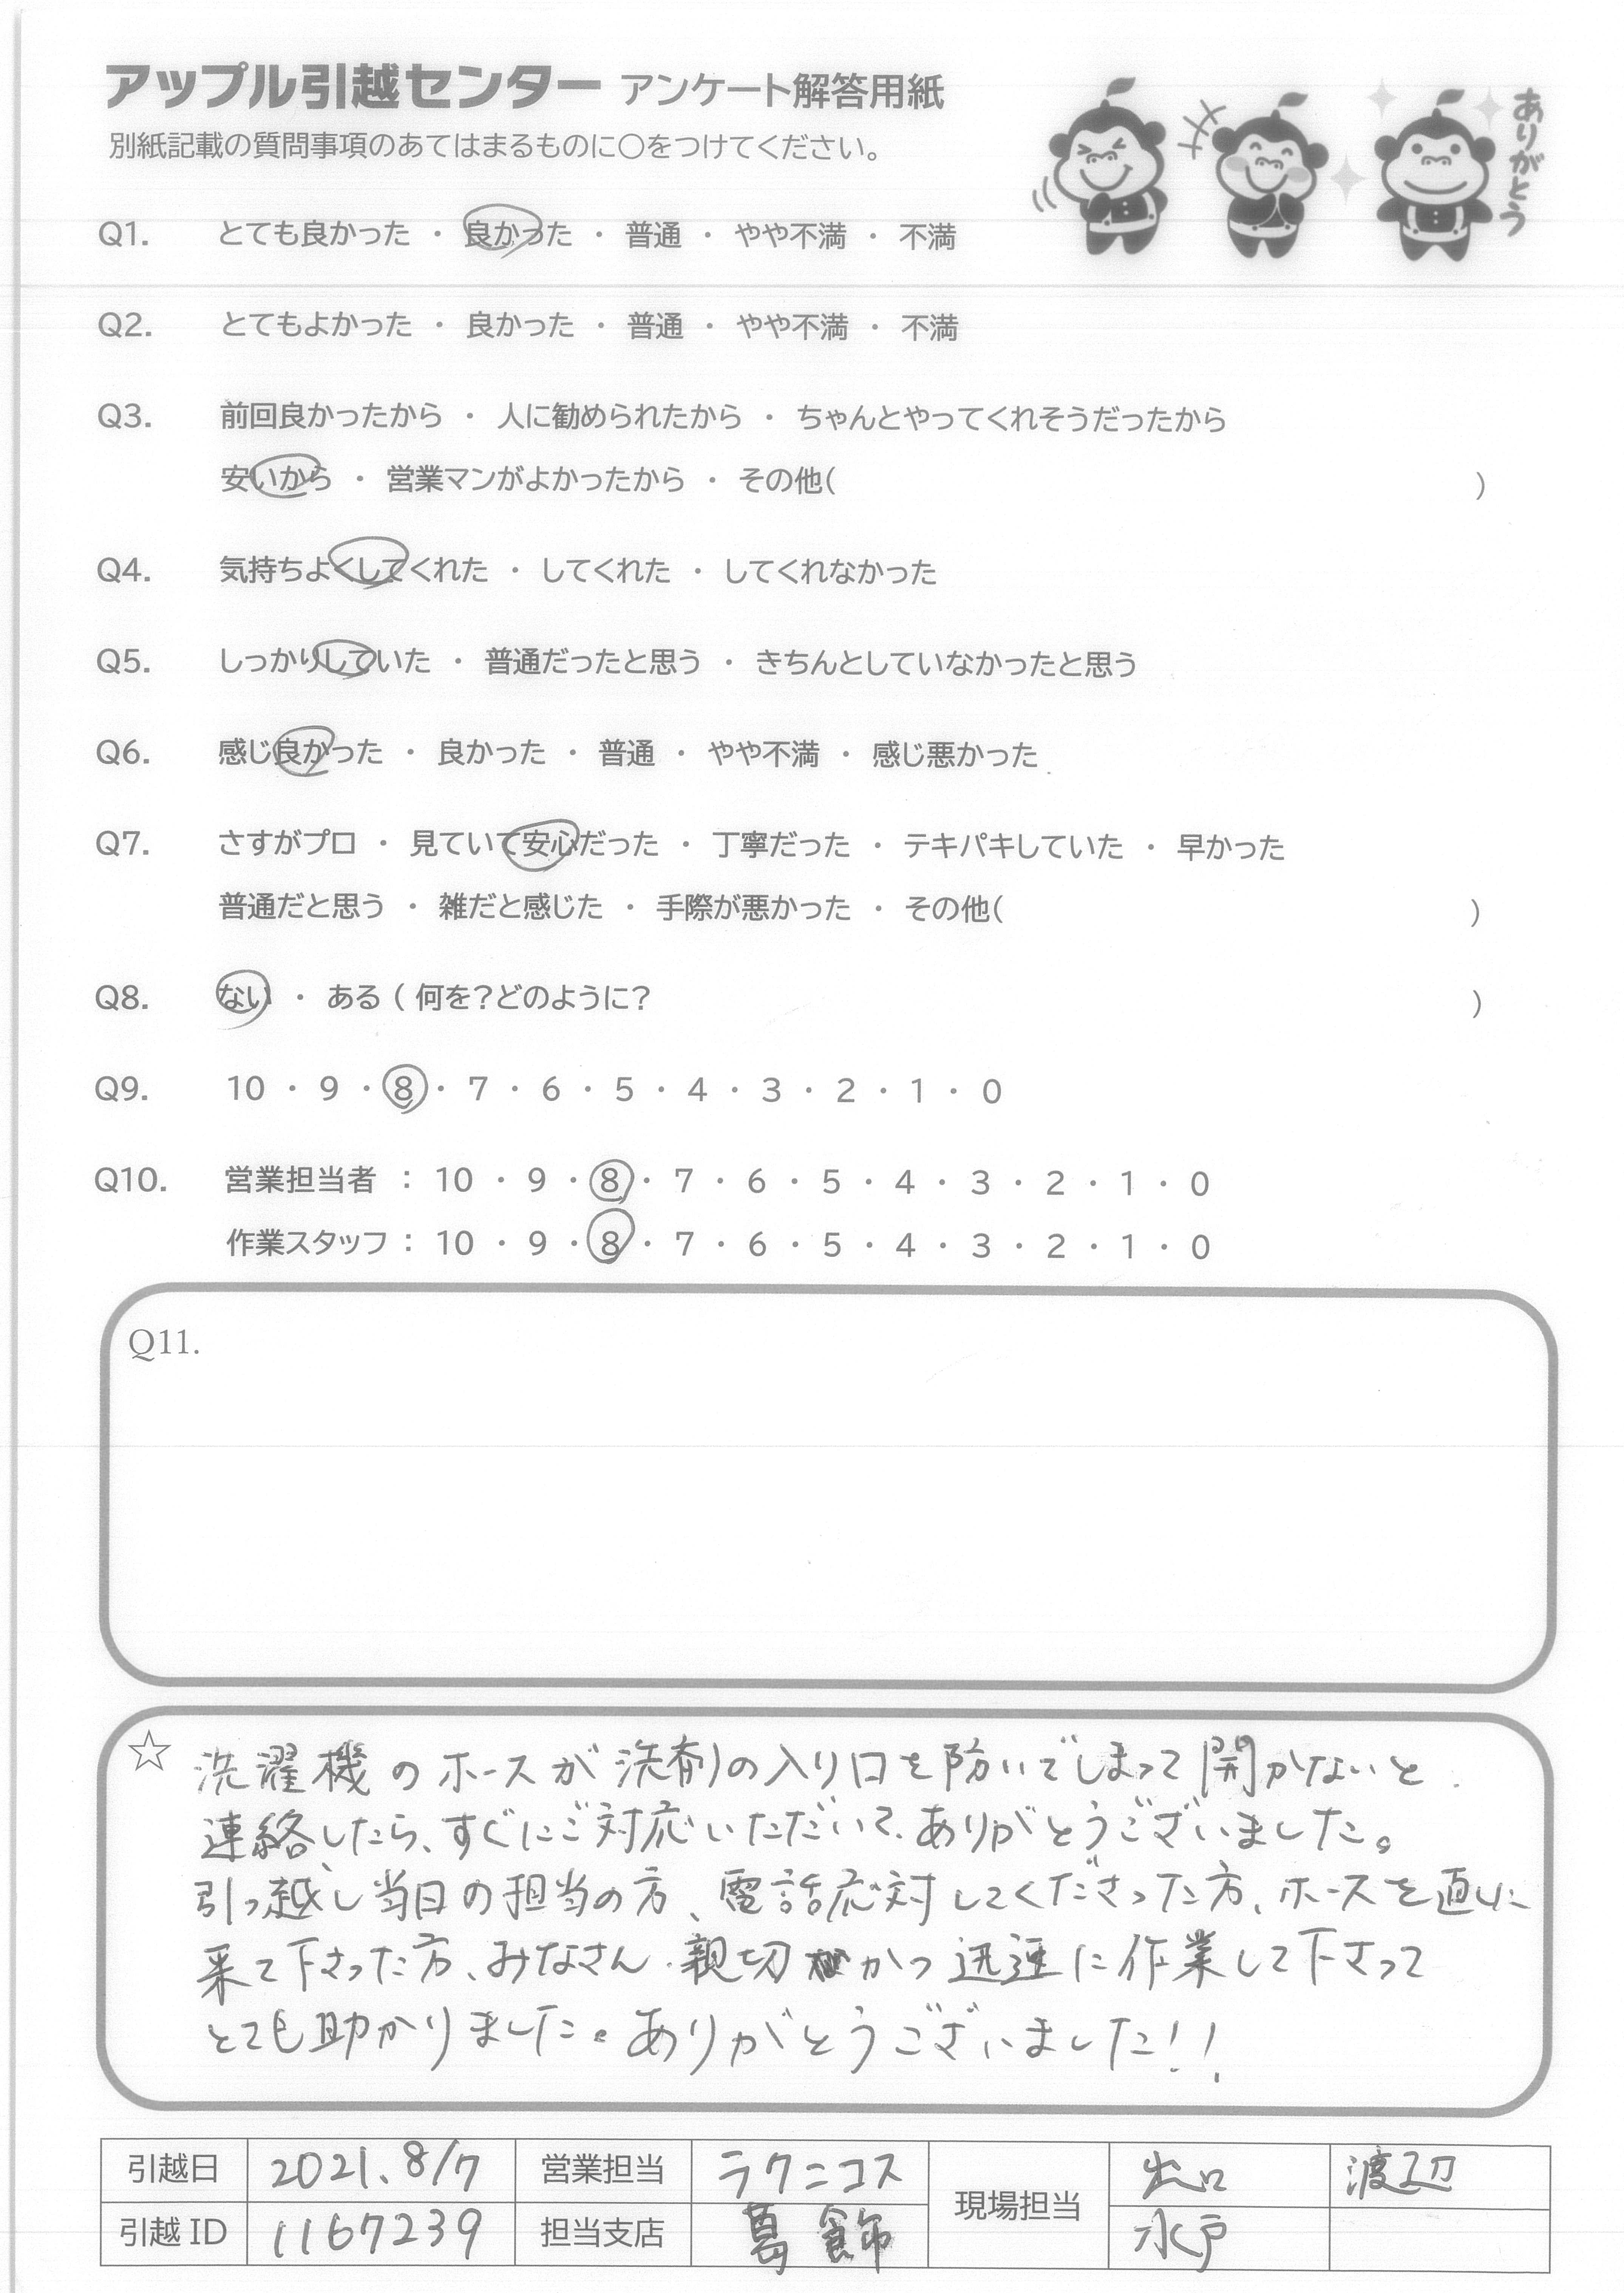 アップル引越センター アンケート解答用紙
別紙記載の質問事項のあてはまるものに〇をつけてください。
ありがとう
Q1. とても良かった ・ 良かった ・ 普通 ・ やや不満 ・ 不満
Q2. とてもよかった ・ 良かった ・ 普通 ・ やや不満 ・ 不満
Q3. 前回良かったから ・ 人に勧められたから ・ ちゃんとやってくれそうだったから
安いから ・ 営業マンがよかったから ・ その他( )
Q4. 気持ちよくしてくれた ・ してくれた ・ してくれなかった
Q5. しっかりしていた ・ 普通だったと思う ・ きちんとしていなかったと思う
Q6. 感じ良かった ・ 良かった ・ 普通 ・ やや不満 ・ 感じ悪かった
Q7. さすがプロ ・ 見ていて安心だった ・ 丁寧だった ・ テキパキしていた ・ 早かった
普通だと思う ・ 雑だと感じた ・ 手際が悪かった ・ その他( )
Q8. ない ・ ある ( 何を?どのように? )
Q9. 10 ・ 9 ・ 8 ・ 7 ・ 6 ・ 5 ・ 4 ・ 3 ・ 2 ・ 1 ・ 0
Q10. 営業担当者 : 10 ・ 9 ・ 8 ・ 7 ・ 6 ・ 5 ・ 4 ・ 3 ・ 2 ・ 1 ・ 0
作業スタッフ : 10 ・ 9 ・ 8 ・ 7 ・ 6 ・ 5 ・ 4 ・ 3 ・ 2 ・ 1 ・ 0
Q11.
☆ 洗濯機のホースが洗剤の入り口を防いでしまって開かないと
連絡したら、すぐにご対応いただいて、ありがとうございました。
引っ越し当日の担当の方、電話応対してくださった方、ホースを直しに
来て下さった方、みなさん、親切かつ迅速に作業して下さって
とても助かりました。ありがとうございました!!
引越日 2021、8/7 営業担当 ラクニコス 現場担当 出口 渡辺
引越 ID 1167239 担当支店 葛飾 水戸